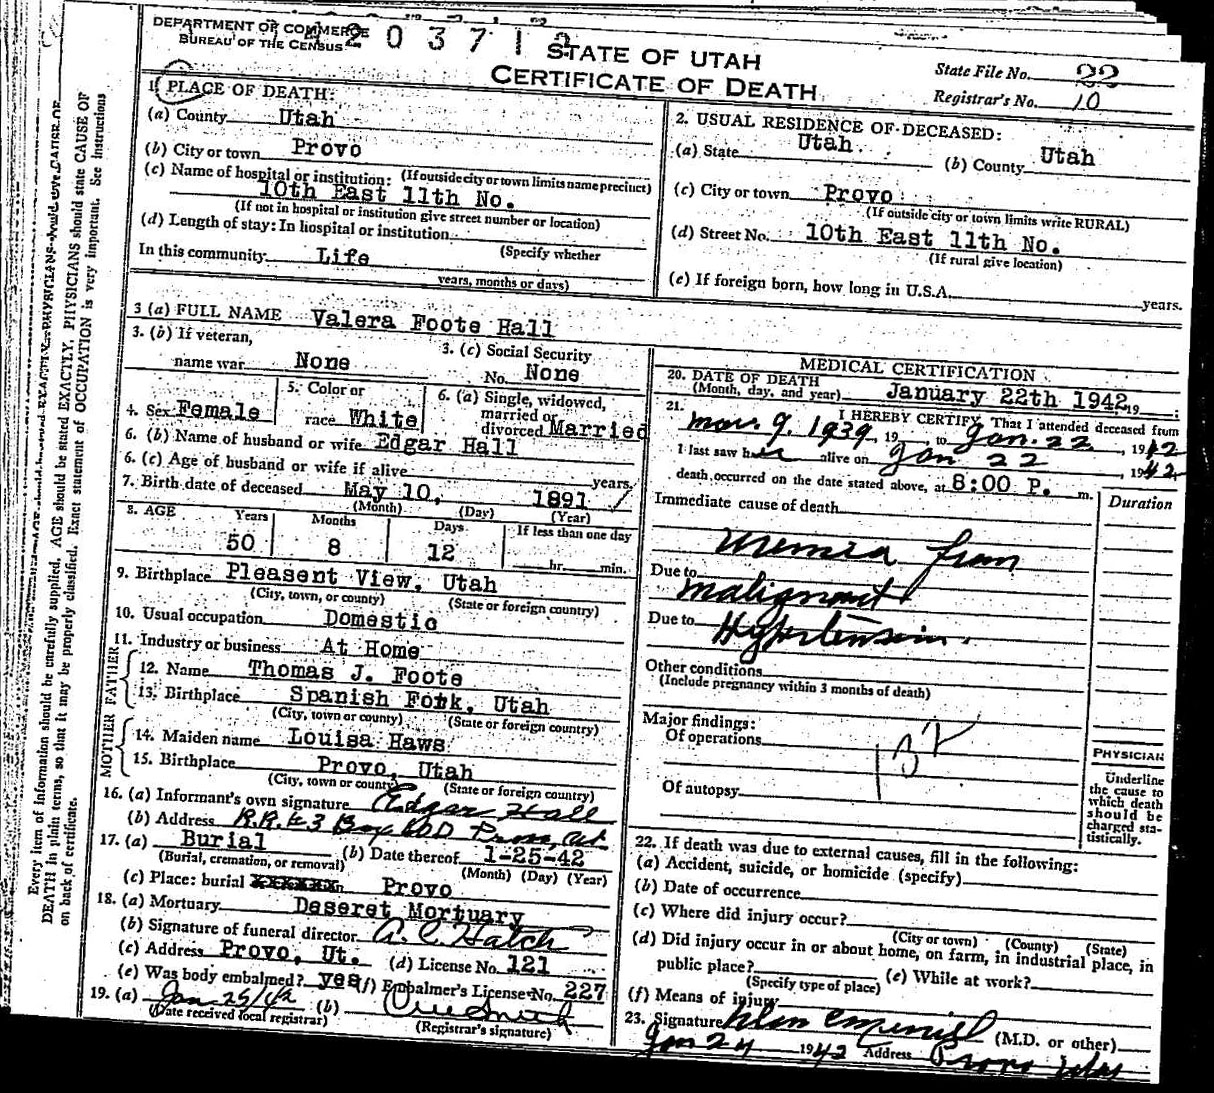 DEPARTMENT OF COMMERCE
BUREAU OF THE CENSUS
2 0 3 7 1
STATE OF UTAH
CERTIFICATE OF DEATH
State File No. 22
Registrar's No. 10
1. PLACE OF DEATH:
(a) County Utah
(b) City or town Provo
(If outside city or town limits name precinct)
(c) Name of hospital or institution:
10th East 11th No.
(If not in hospital or institution give street number or location)
(d) Length of stay: In hospital or institution
(Specify whether
In this community Life
years, months or days)
2. USUAL RESIDENCE OF DECEASED:
(a) State Utah (b) County Utah
(c) City or town Provo
(If outside city or town limits write RURAL)
(d) Street No. 10th East 11th No.
(If rural give location)
(e) If foreign born, how long in U.S.A. years.
3 (a) FULL NAME Valera Foote Hall
3. (b) If veteran,
name war None
3. (c) Social Security
No. None
4. Sex Female
5. Color or
race White
6. (a) Single, widowed,
married or
divorced Married
6. (b) Name of husband or wife Edgar Hall
6. (c) Age of husband or wife if alive years
7. Birth date of deceased May 10, 1891
(Month) (Day) (Year)
8. AGE Years Months Days If less than one day
50 8 12 hr. min.
9. Birthplace Pleasent View, Utah
(City, town, or county) (State or foreign country)
10. Usual occupation Domestic
11. Industry or business At Home
FATHER
12. Name Thomas J. Foote
13. Birthplace Spanish Fork, Utah
(City, town or county) (State or foreign country)
MOTHER
14. Maiden name Louisa Haws
15. Birthplace Provo, Utah
(City, town or county) (State or foreign country)
16. (a) Informant's own signature Edgar Hall
(b) Address R.R. #3 Box Provo, Ut.
17. (a) Burial (b) Date thereof 1-25-42
(Burial, cremation, or removal) (Month) (Day) (Year)
(c) Place: burial Provo
18. (a) Mortuary Deseret Mortuary
(b) Signature of funeral director A. C. Hatch
(c) Address Provo, Ut. (d) License No. 121
(e) Was body embalmed? yes (f) Embalmer's License No. 227
19. (a) Jan 25/42 (b) Smith
(Date received local registrar) (Registrar's signature)
MEDICAL CERTIFICATION
20. DATE OF DEATH
(Month, day, and year) January 22th 1942 19
21. I HEREBY CERTIFY, That I attended deceased from
Mar. 9. 1939, 19 to Jan. 22, 1942
I last saw her alive on Jan 22, 1942
death occurred on the date stated above, at 8:00 P. m.
Immediate cause of death
Duration
Uremia from
Due to Malignant
Due to Hypertension.
Other conditions
(Include pregnancy within 3 months of death)
Major findings:
Of operations
Of autopsy
PHYSICIAN
Underline
the cause to
which death
should be
charged sta-
tistically.
22. If death was due to external causes, fill in the following:
(a) Accident, suicide, or homicide (specify)
(b) Date of occurrence
(c) Where did injury occur?
(City or town) (County) (State)
(d) Did injury occur in or about home, on farm, in industrial place, in
public place? (e) While at work?
(Specify type of place)
(f) Means of injury
23. Signature (M.D. or other)
Jan 24 1942 Address Provo Utah
Every item of information should be carefully supplied. AGE should be stated EXACTLY. PHYSICIANS should state CAUSE OF
DEATH in plain terms, so that it may be properly classified. Exact statement of OCCUPATION is very important. See Instructions
on back of certificate.